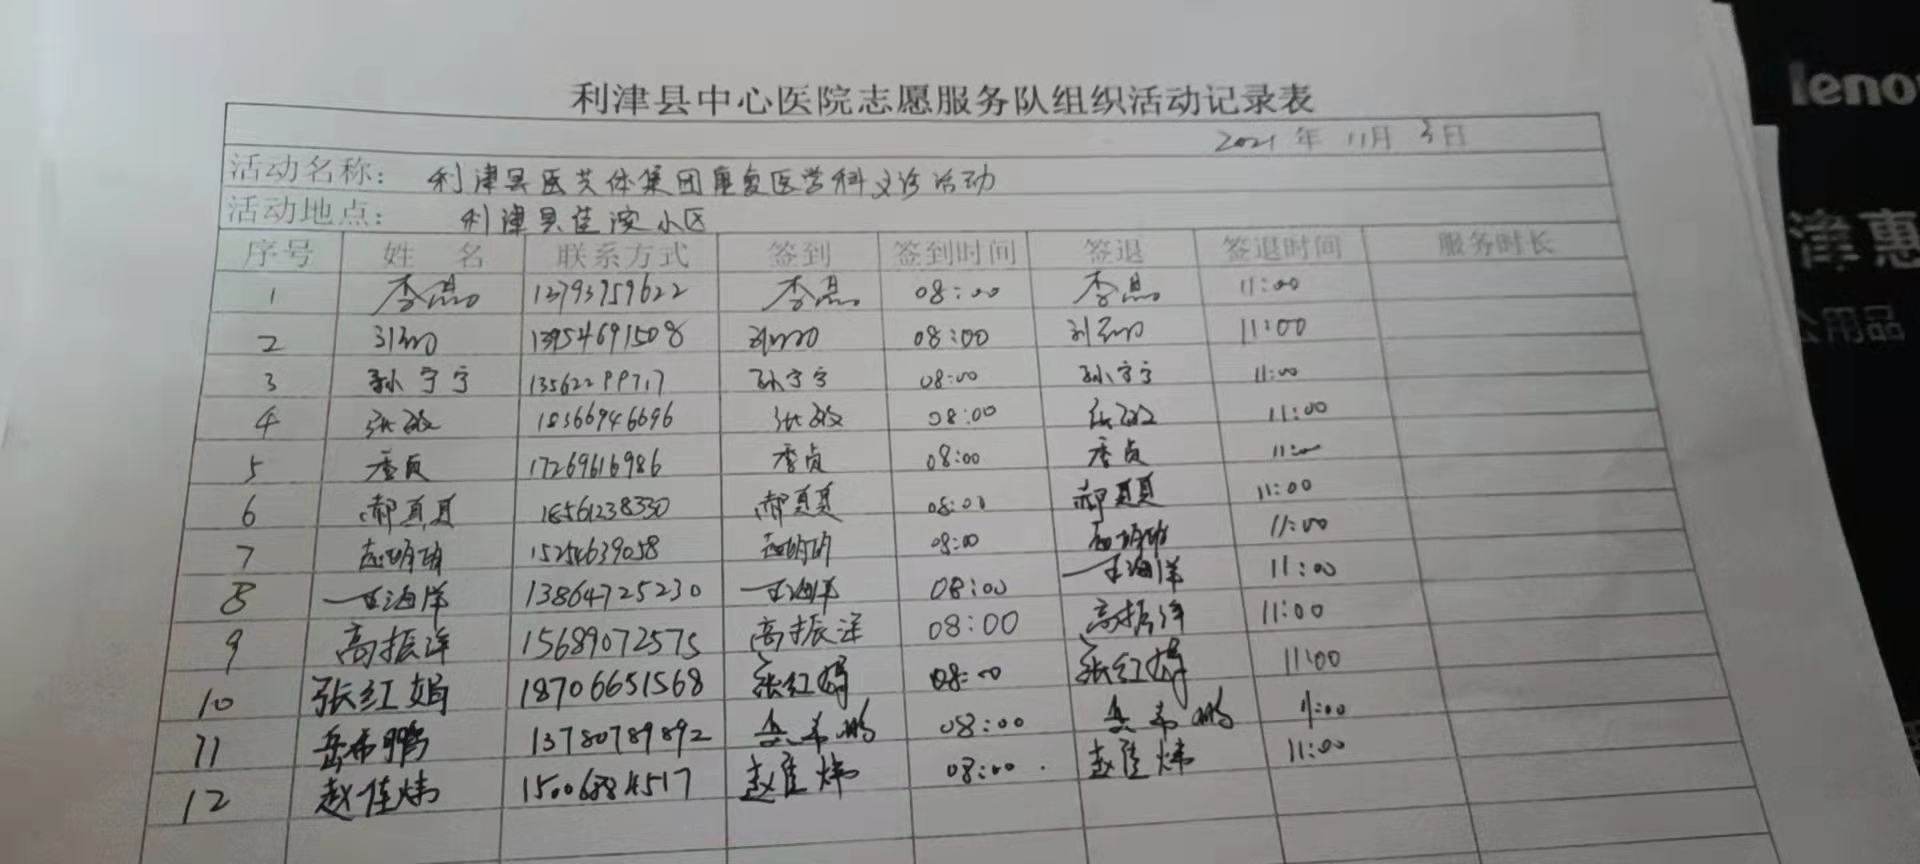 利津县中心医院志愿服务队组织活动记录表
2021年 11月 3日
活动名称： 利津县医共体集团康复医学科义诊活动
活动地点： 利津县佳滨小区
序号 姓名 联系方式 签到 签到时间 签退 签退时间 服务时长
1 13793959622 08:00 11:00
2 13954691508 08:00 11:00
3 孙宁宁 孙宁宁 08:00 孙宁宁 11:00
4 张敏 18366946696 张敏 08:00 张敏 11:00
5 季贞 17269616986 季贞 08:00 季贞 11:00
6 郝夏夏 18561238330 郝夏夏 08:00 郝夏夏 11:00
7 15254639058 08:00 11:00
8 王海洋 13864725230 王海洋 08:00 王海洋 11:00
9 高振洋 15689072575 高振洋 08:00 高振洋 11:00
10 张红娟 18706651568 张红娟 08:00 张红娟 11:00
11 岳希鹏 13780789892 岳希鹏 08:00 岳希鹏 11:00
12 赵佳炜 赵佳炜 08:00 赵佳炜 11:00
leno
津惠
公用品